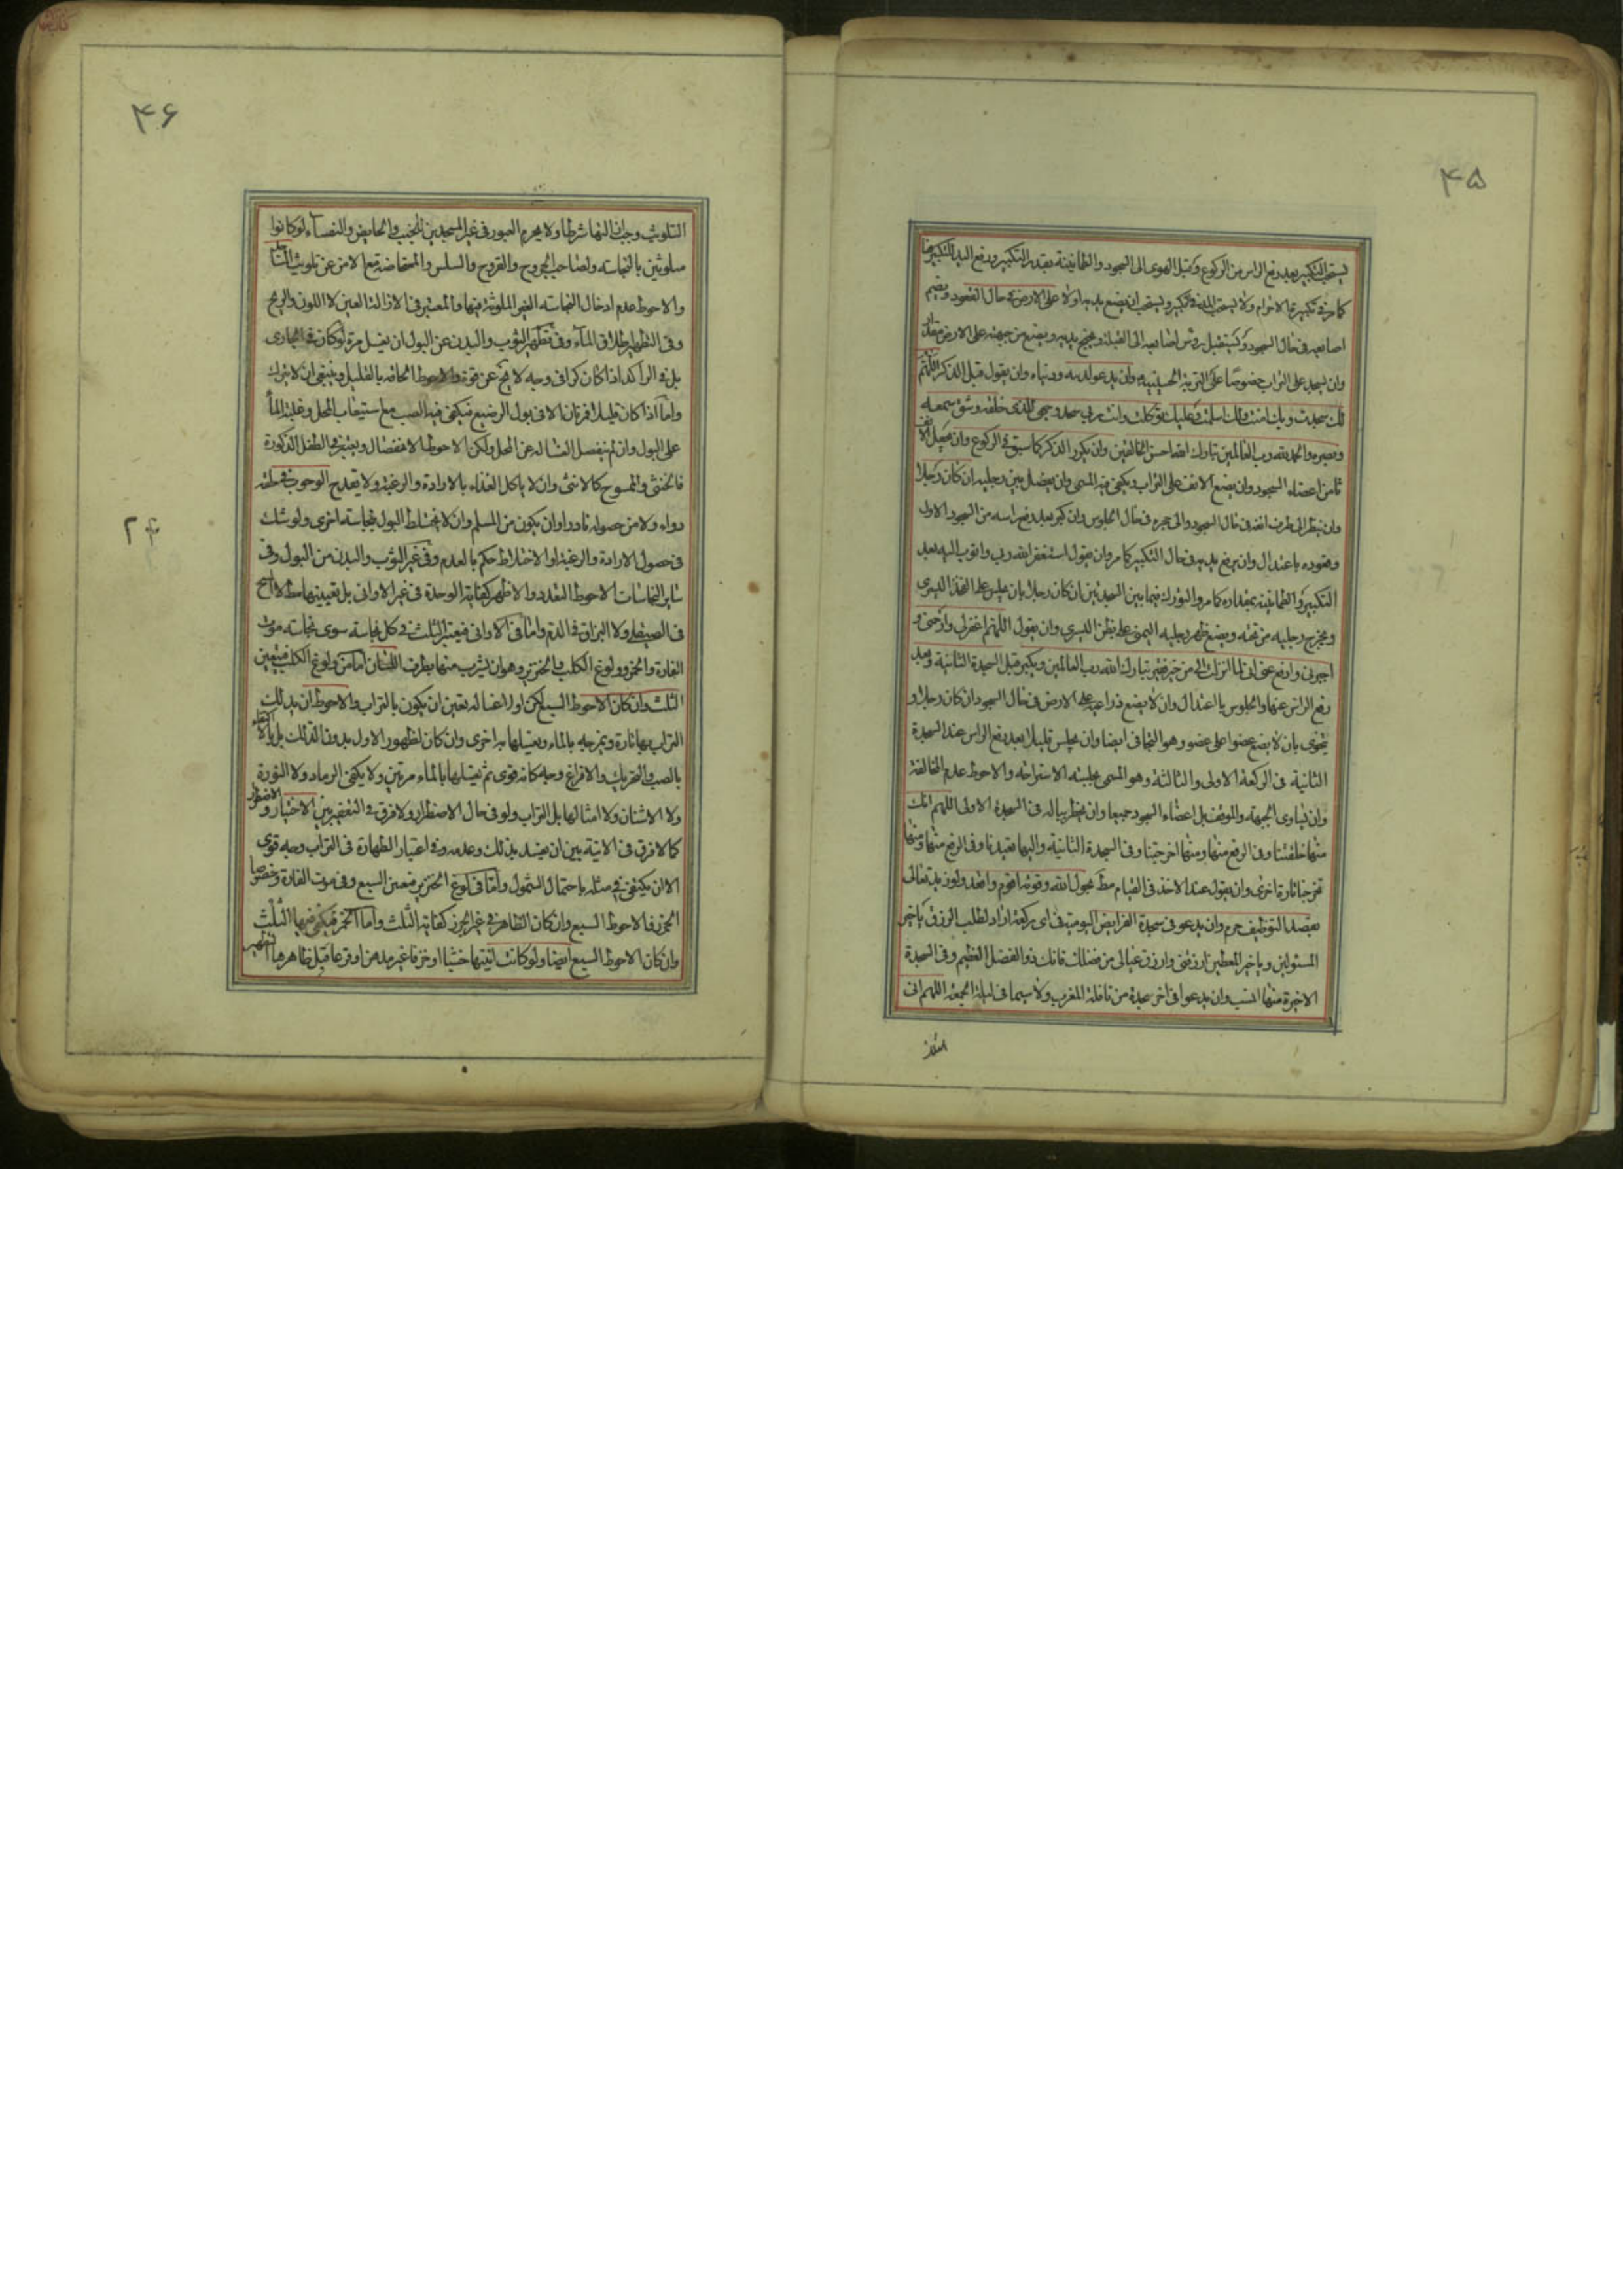 ۴۵
يستحب التكبير بعد رفع الراس من الركوع وقبل الهوى الى السجود والطمانينة بقدر التكبير ورفع اليد للتكبير
كما مر في تكبيرة الاحرام ولا يستحب في التكبير ويستحب ان يضع يديه اولا على الارض في حال القعود ويضم
اصابعه في حال السجود ويستقبل بروس اصابعه الى القبلة ويجنح بيديه ويضع من جبهته على الارض مقدار
وان يسجد على التراب خصوصا على التربة الحسينية وان يدعو لدينه ودنياه وان يقول قبل الذكر اللهم
لك سجدت وبك امنت ولك اسلمت وعليك توكلت وانت ربي سجد وجهي للذي خلقه وشق سمعه
وبصره والحمد لله رب العالمين تبارك الله احسن الخالقين وان يكرر الذكر كما سبق في الركوع وان يجعل الانف
ثامن اعضاء السجود وان يضع الانف على التراب ويكفي فيه المسمى وان يفصل بين رجليه ان كان رجلا
وان ينظر الى طرف انفه في حال السجود والى حجره في حال الجلوس وان يكبر بعد رفع راسه من السجود الاول
وقعوده باعتدال وان يرفع يديه في حال التكبير كما مر وان يقول استغفر الله ربي واتوب اليه بعد
التكبير والطمانينة بمقداره كما مر والتورك فيما بين السجدتين ان كان رجلا بان يجلس على الفخذ اليسرى
ويخرج رجليه من تحته ويضع ظهر رجليه اليمنى على بطن اليسرى وان يقول اللهم اغفر لي وارحمني و
اجبرني وادفع عني اني لما انزلت الي من خير فقير تبارك الله رب العالمين ويكبر قبل السجدة الثانية وبعد
رفع الراس عنها والجلوس بالاعتدال وان لا يضع ذراعيه على الارض في حال السجود ان كان رجلا و
يتخوى بان لا يضع عضوا على عضو وهو التجافي ايضا وان يجلس قليلا بعد رفع الراس عند السجدة
الثانية في الركعة الاولى والثالثة وهو المسمى بجلسة الاستراحة والاحوط عدم المخالفة
وان يساوى الجبهة والموقف بل اعضاء السجود جميعا وان يخطر بباله في السجدة الاولى اللهم انك
منها خلقتنا وفي الرفع منها ومنها اخرجتنا وفي السجدة الثانية واليها تعيدنا وفي الرفع منها ومنها
تخرجنا تارة اخرى وان يقول عند الاخذ في القيام بحول الله وقوته اقوم واقعد ولو
بقصد التوظيف حرم وان يدعو في سجدة الفرايض اليومية في اى ركعة اراد لطلب الرزق يا خير
المسئولين ويا خير المعطين ارزقني وارزق عيالي من فضلك فانك ذو الفضل العظيم وفي السجدة
الاخيرة منها وان يدعوا في اخر سجدة من نافلة المغرب ولا سيما في ليلة الجمعة اللهم اني
۴۶
التلويث وجب ازالتها شرطا ولا يحرم العبور في غير المسجدين للجنب والحايض والنفساء لو كانوا
ملوثين بالنجاسة ولصاحب الجروح والقروح والسلس والمستحاضة مع الامن عن تلويث
والاحوط عدم ادخال النجاسة الغير الملوثة فيها والمعتبر في الازالة العين لا اللون والريح
وفي التطهير اطلاق الماء وفي تطهير الثوب والبدن عن البول ان يغسل مرة لو كان في الجارى
بل في الراكد اذا كان كرا في وجه لا يخ عن قوة والاحوط الحاقه بالقليل وينبغي ان لا يترك
واما اذا كان قليلا فمرتان الا في بول الرضيع فيكفي فيه الصب مع استيعاب المحل وغلبة الماء
على البول وان لم ينفصل الغسالة عن المحل ولكن الاحوط الانفصال ويعتبر في الطفل الذكورة
فالخنثى والممسوح كالانثى وان لا ياكل الغذاء بالارادة والرغبة ولا يقدح
دواء ولا من حصوله نادرا وان يكون من المسلم وان لا يختلط البول بنجاسة اخرى ولو شك
في حصول الارادة والرغبة او الاختلاط حكم بالعدم وفي غير الثوب والبدن من البول وفي
ساير النجاسات الاحوط التعدد والاظهر كفاية الوحدة في غير الاواني بل
في الصيقلي ولا البزاق في الدم واما في الاواني فيعتبر الثلث في كل نجاسة سوى نجاسة موت
الفارة والخمر وولوغ الكلب والخنزير وهو ان يشرب منها بطرف اللسان اما من ولوغ الكلب فيتعين
الثلث وان كان الاحوط السبع لكن اولا غسالة يتعين ان يكون بالتراب والاحوط ان يدلك
التراب بها تارة ويمزجه بالماء ويغسلها به اخرى وان كان لظهور الاول بدون الدلك بل الاكتفاء
بالصب والتحريك والافراغ وجه كانه قوى ثم يغسلها بالماء مرتين ولا يكفي الرماد ولا النورة
ولا الاشنان ولا امثالها بل التراب ولو في حال الاضطرار ولا فرق في التعفير بين الاختيار والاضطرار
كما لا فرق في الانية بين ان يفسد بذلك وعدمه وفي اعتبار الطهارة في التراب وجه قوى
الا ان يكتفى في مثله باحتمال الشمول واما في لوغ الخنزير فيتعين السبع وفي موت الفارة وخصوصا
الجرز فالاحوط السبع وان كان الظاهر في غير الجرز كفاية الثلث واما الخمر فيكفي فيها الثلث
وان كان الاحوط السبع ايضا ولو كانت انيتها خشبا او خزفا غير مدهن او قرعا قبل ظاهرها التطهير